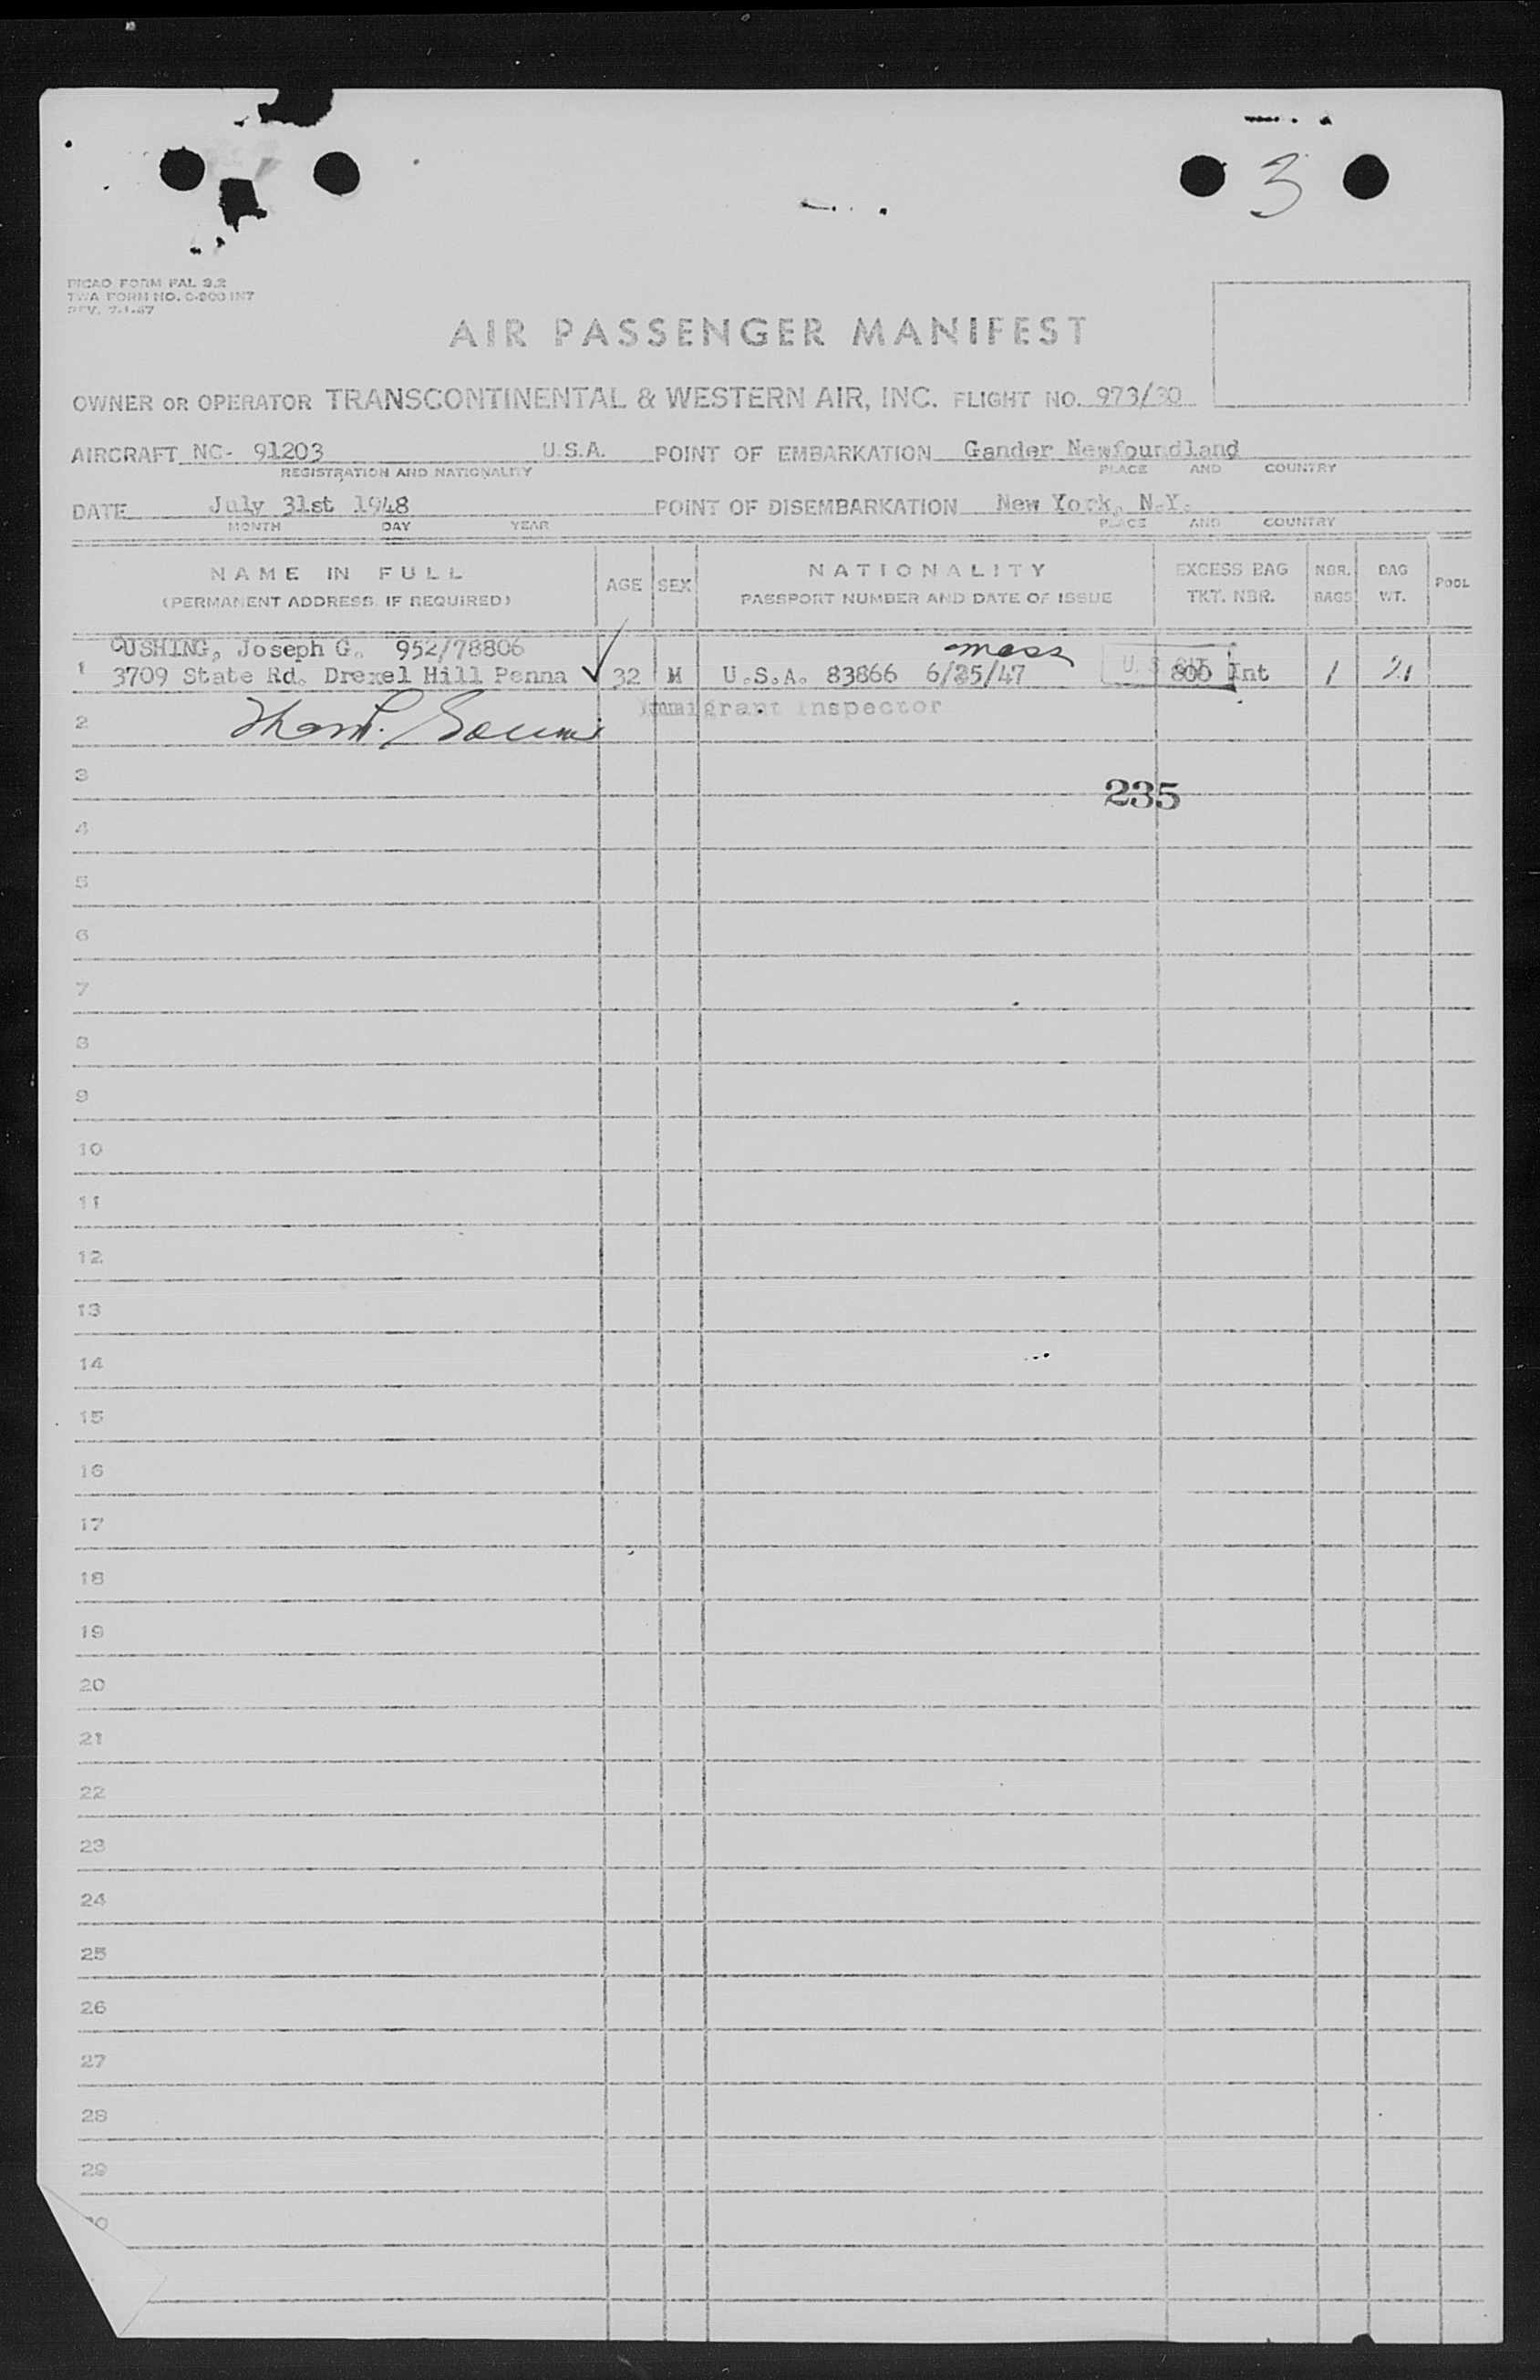 3
PICAO FORM FAL 9.2
TWA FORM NO. C-800 INT
REV. 7-1-47
AIR PASSENGER MANIFEST
OWNER OR OPERATOR TRANSCONTINENTAL & WESTERN AIR, INC. FLIGHT NO. 973/30
AIRCRAFT NC- 91203 U.S.A. POINT OF EMBARKATION Gander Newfoundland
REGISTRATION AND NATIONALITY PLACE AND COUNTRY
DATE July 31st 1948 POINT OF DISEMBARKATION New York, N.Y.
MONTH DAY YEAR PLACE AND COUNTRY
NAME IN FULL AGE SEX NATIONALITY EXCESS BAG NBR. BAG POOL
(PERMANENT ADDRESS IF REQUIRED) PASSPORT NUMBER AND DATE OF ISSUE TKT. NBR. BAGS WT.
CUSHING, Joseph G. 952/78806 mass
1 3709 State Rd. Drexel Hill Penna 32 M U.S.A. 83866 6/25/47 U. S. CIT 800 Int 1 21
2 Immigrant Inspector
3
235
4
5
6
7
8
9
10
11
12
13
14
15
16
17
18
19
20
21
22
23
24
25
26
27
28
29
30